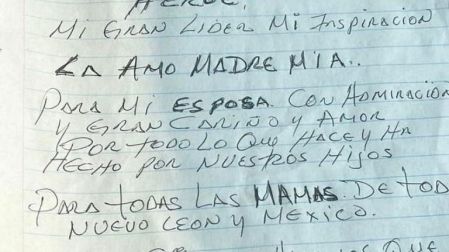 HEROE.
MI GRAN LIDER MI INSPIRACION
LA AMO MADRE MIA..
PARA MI ESPOSA. CON ADMIRACIÓN
Y GRAN CARIÑO Y AMOR
POR TODO LO QUE HACE Y HA
HECHO POR NUESTROS HIJOS
PARA TODAS LAS MAMAS. DE TOD
NUEVO LEON Y MEXICO.
QUE